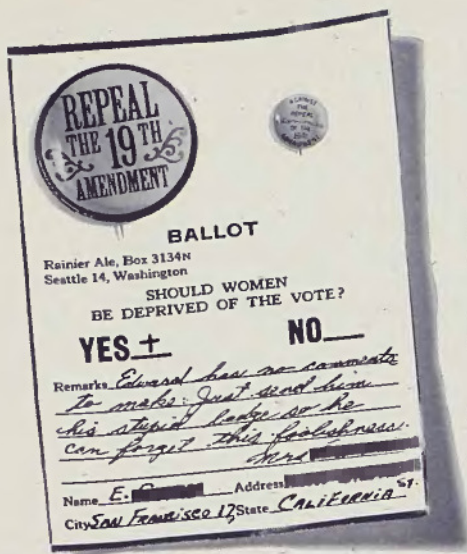 REPEAL
THE 19TH
AMENDMENT
AGAINST
THE
REPEAL
OF THE
19TH
AMENDMENT
BALLOT
Rainier Ale, Box 3134N
Seattle 14, Washington
SHOULD WOMEN
BE DEPRIVED OF THE VOTE?
YES + NO
Remarks Edward has no comments
to make. Just send him
his stupid badge so he
can forget this foolishness.
Mrs
Name E. Address St.
City San Francisco 17 State CALIFORNIA